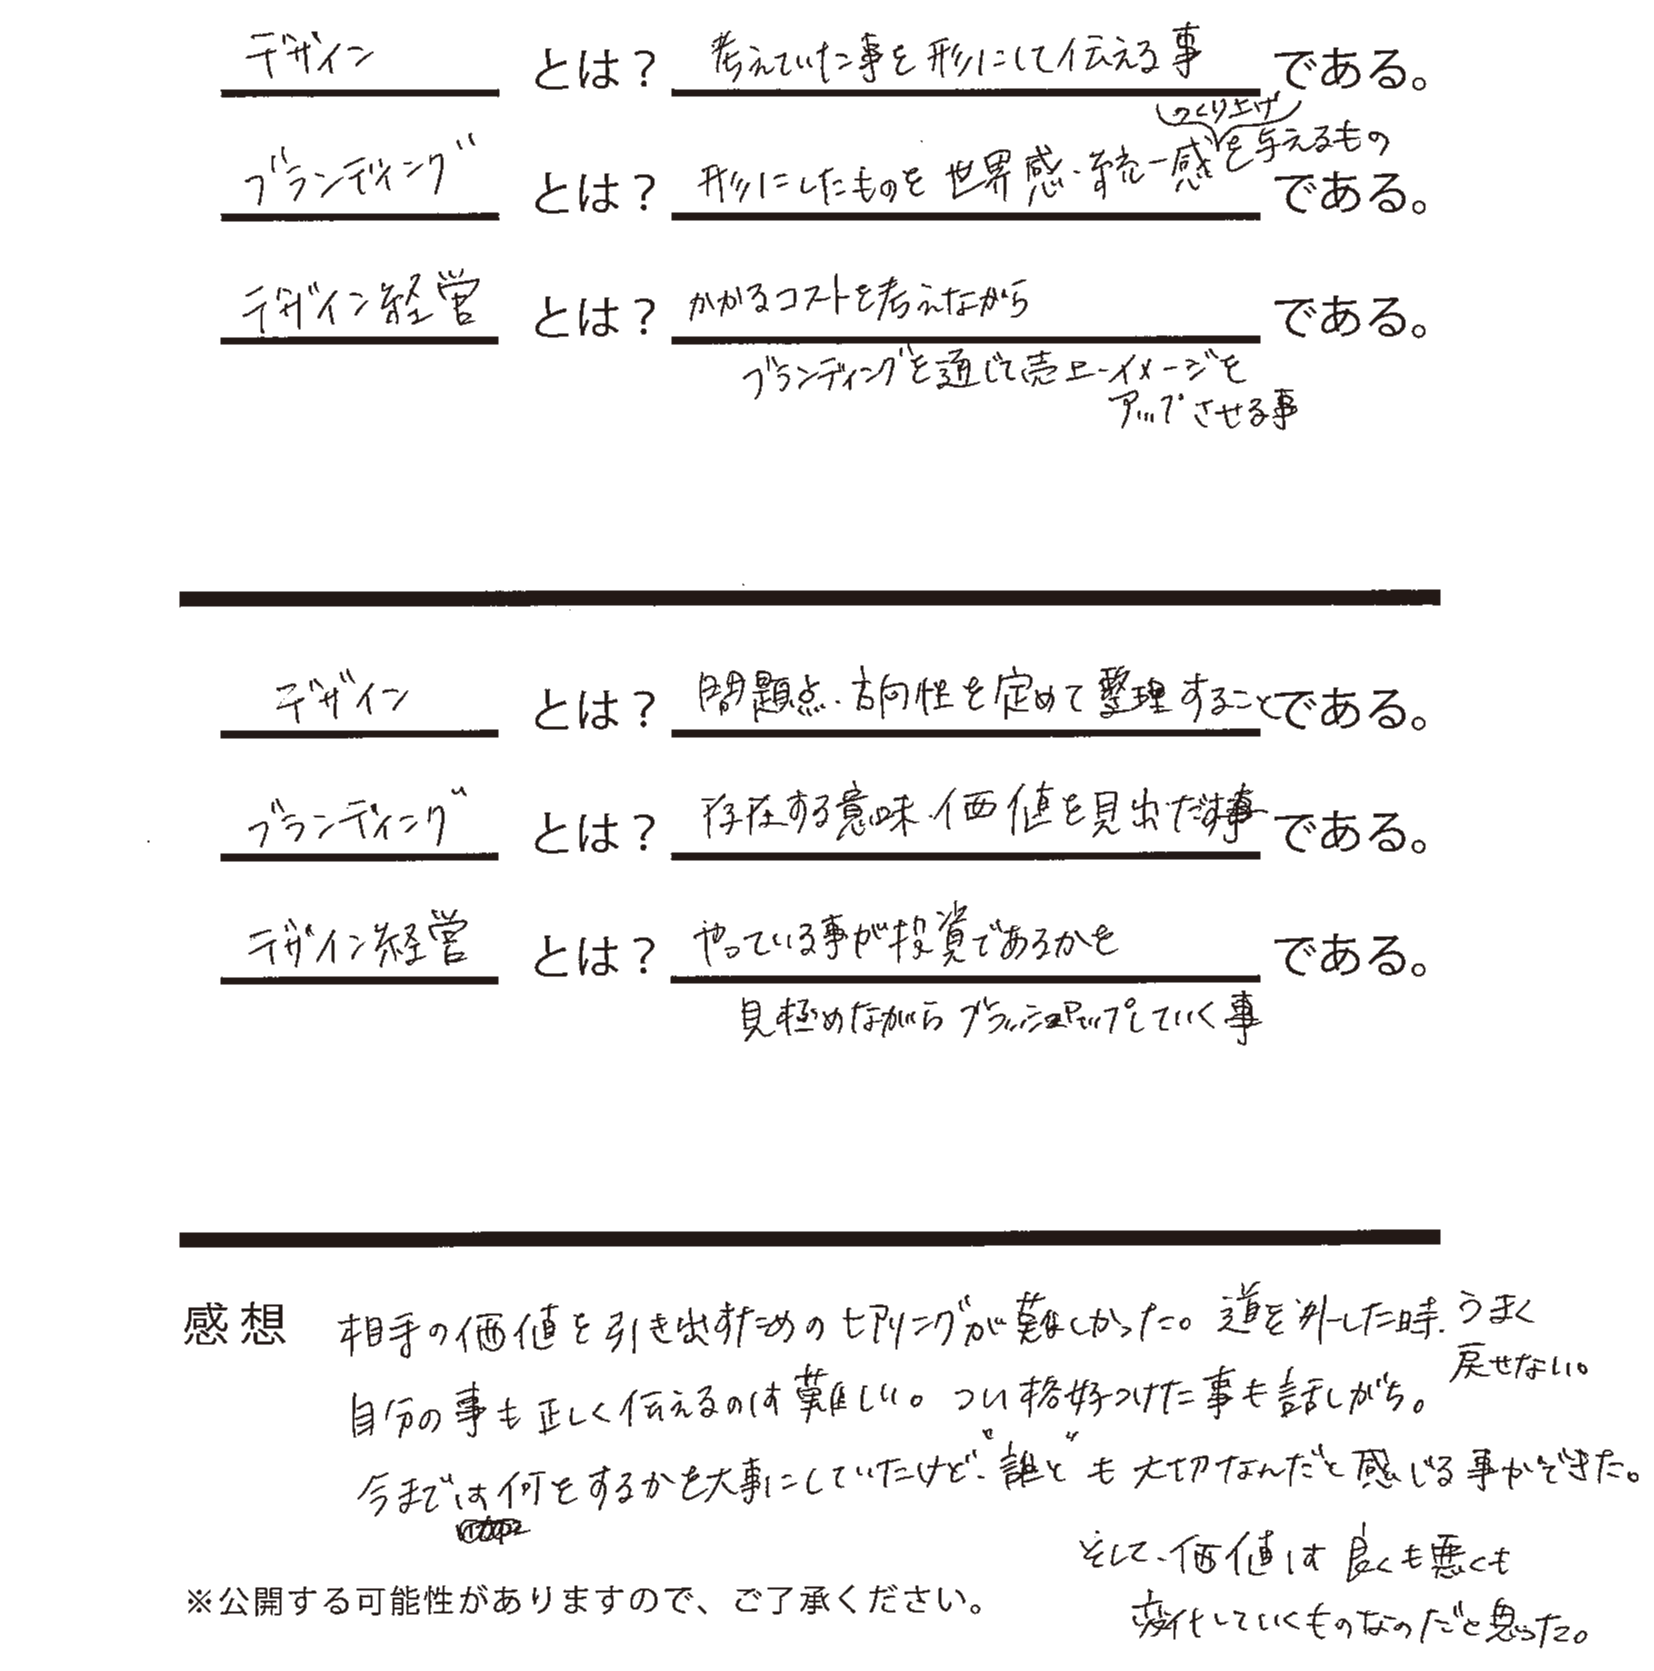 デザイン とは？ 考えていた事を形にして伝える事 である。
つくり上げ
ブランディング とは？ 形にしたものを世界感・統一感を与えるもの である。
デザイン経営 とは？ かかるコストを考えながら である。
ブランディングを通じて売上・イメージを
アップさせる事
デザイン とは？ 問題点・方向性を定めて整理すること である。
ブランディング とは？ 存在する意味・価値を見出だす事 である。
デザイン経営 とは？ やっている事が投資であるかを である。
見極めながらブラッシュアップしていく事
感想 相手の価値を引き出すためのヒアリングが難しかった。道を外した時、うまく
戻せない。
自分の事も正しく伝えるのは難しい。つい格好つけた事も話しがち。
今までは何をするかを大事にしていたけど、"誰と"も大切なんだと感じる事ができた。
そして、価値は良くも悪くも
変化していくものなのだと思った。
※公開する可能性がありますので、ご了承ください。